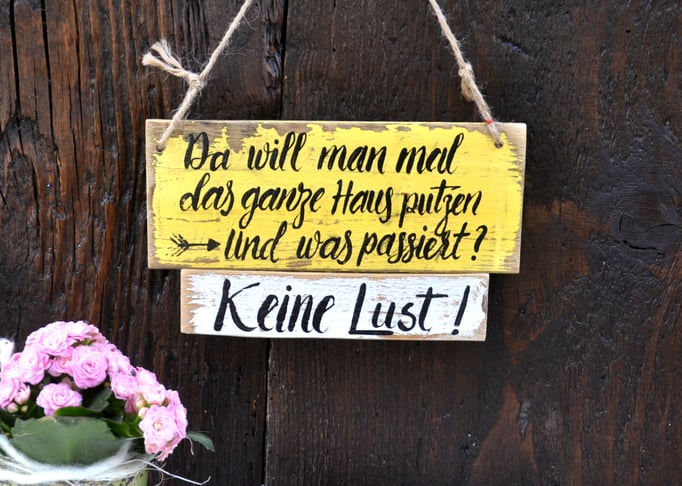 Da will man mal
das ganze Haus putzen
Und was passiert?
Keine Lust!